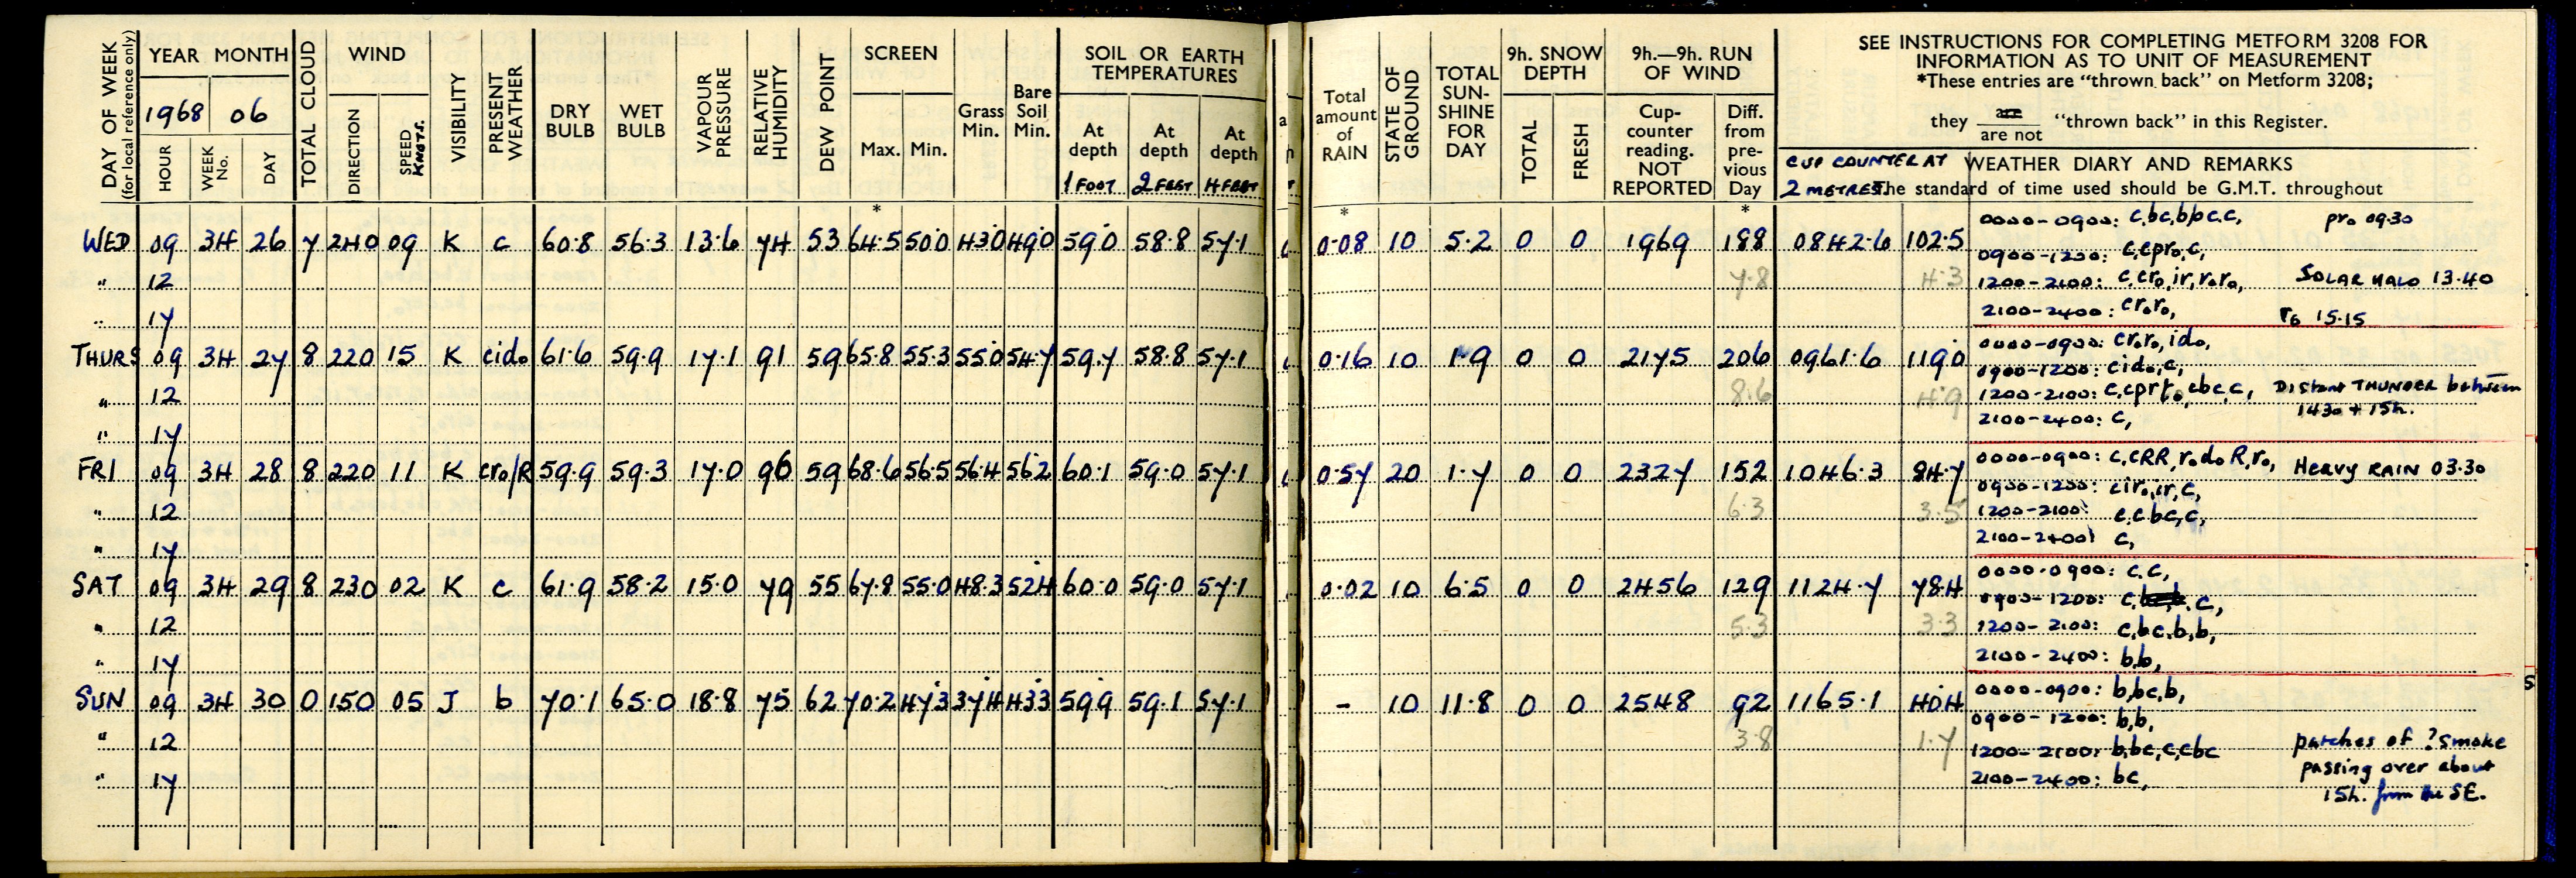 DAY OF WEEK (for local reference only)
YEAR MONTH
1968 06
HOUR WEEK No. DAY
TOTAL CLOUD
WIND
DIRECTION SPEED KNOTS.
VISIBILITY
PRESENT WEATHER
DRY BULB
WET BULB
VAPOUR PRESSURE
RELATIVE HUMIDITY
DEW POINT
SCREEN
Max. Min.
Grass Min.
Bare Soil Min.
SOIL OR EARTH TEMPERATURES
At depth 1 FOOT
At depth 2 FEET
At depth 4 FEET
Total amount of RAIN
STATE OF GROUND
TOTAL SUN-SHINE FOR DAY
9h. SNOW DEPTH
TOTAL FRESH
9h.—9h. RUN OF WIND
Cup-counter reading. NOT REPORTED
Diff. from pre-vious Day
SEE INSTRUCTIONS FOR COMPLETING METFORM 3208 FOR
INFORMATION AS TO UNIT OF MEASUREMENT
*These entries are "thrown back" on Metform 3208;
they are / are not "thrown back" in this Register.
CUP COUNTER AT 2 METRES
WEATHER DIARY AND REMARKS
The standard of time used should be G.M.T. throughout
* * *
WED 09 34 26 7 240 09 K c 60.8 56.3 13.6 74 53 64.5 50.0 43.0 49.0 59.0 58.8 57.1 0.08 10 5.2 0 0 1969 188 0842.6 102.5
0000-0900: c,bc,b,bc.c, pr₀ 09.30
0900-1200: c,cpr₀,c,
" 12 7.8 4.3
1200-2100: c,cr₀,ir,r₀r₀, SOLAR HALO 13.40
" 17
2100-2400: cr₀r₀, r₀ 15.15
THURS 09 34 27 8 220 15 K cid₀ 61.6 59.9 17.1 91 59 65.8 55.3 55.0 54.7 59.7 58.8 57.1 0.16 10 1.9 0 0 2175 206 0961.6 119.0
0000-0900: cr₀r₀, id₀,
0900-1200: cid₀,c,
" 12 8.6 4.9
1200-2100: c,cprt₀,cbc,c, Distant THUNDER between
1430 + 15h.
2100-2400: c,
" 17
FRI 09 34 28 8 220 11 K cr₀/R 59.9 59.3 17.0 96 59 68.6 56.5 56.4 56.2 60.1 59.0 57.1 0.57 20 1.7 0 0 2327 152 1046.3 84.7
0000-0900: c,cRR,r₀d₀R,r₀, Heavy RAIN 03.30
0900-1200: cir₀,ir,c,
" 12 6.3 3.5
1200-2100: c,cbc,c,
" 17
2100-2400: c,
SAT 09 34 29 8 230 02 K c 61.9 58.2 15.0 79 55 67.8 55.0 48.3 52.4 60.0 59.0 57.1 0.02 10 6.5 0 0 2456 129 1124.7 78.4
0000-0900: c.c,
0900-1200: c, c,
" 12 5.3 3.3
1200-2100: c,bc.b,b,
" 17
2100-2400: b,b,
SUN 09 34 30 0 150 05 J b 70.1 65.0 18.8 75 62 70.2 47.3 37.4 43.3 59.9 59.1 57.1 - 10 11.8 0 0 2548 92 1165.1 40.4
0000-0900: b,bc,b,
0900-1200: b,b,
" 12 3.8 1.7
1200-2100: b,bc,c,cbc patches of ? smoke
passing over about
" 17
2100-2400: bc,
15h. from the SE.